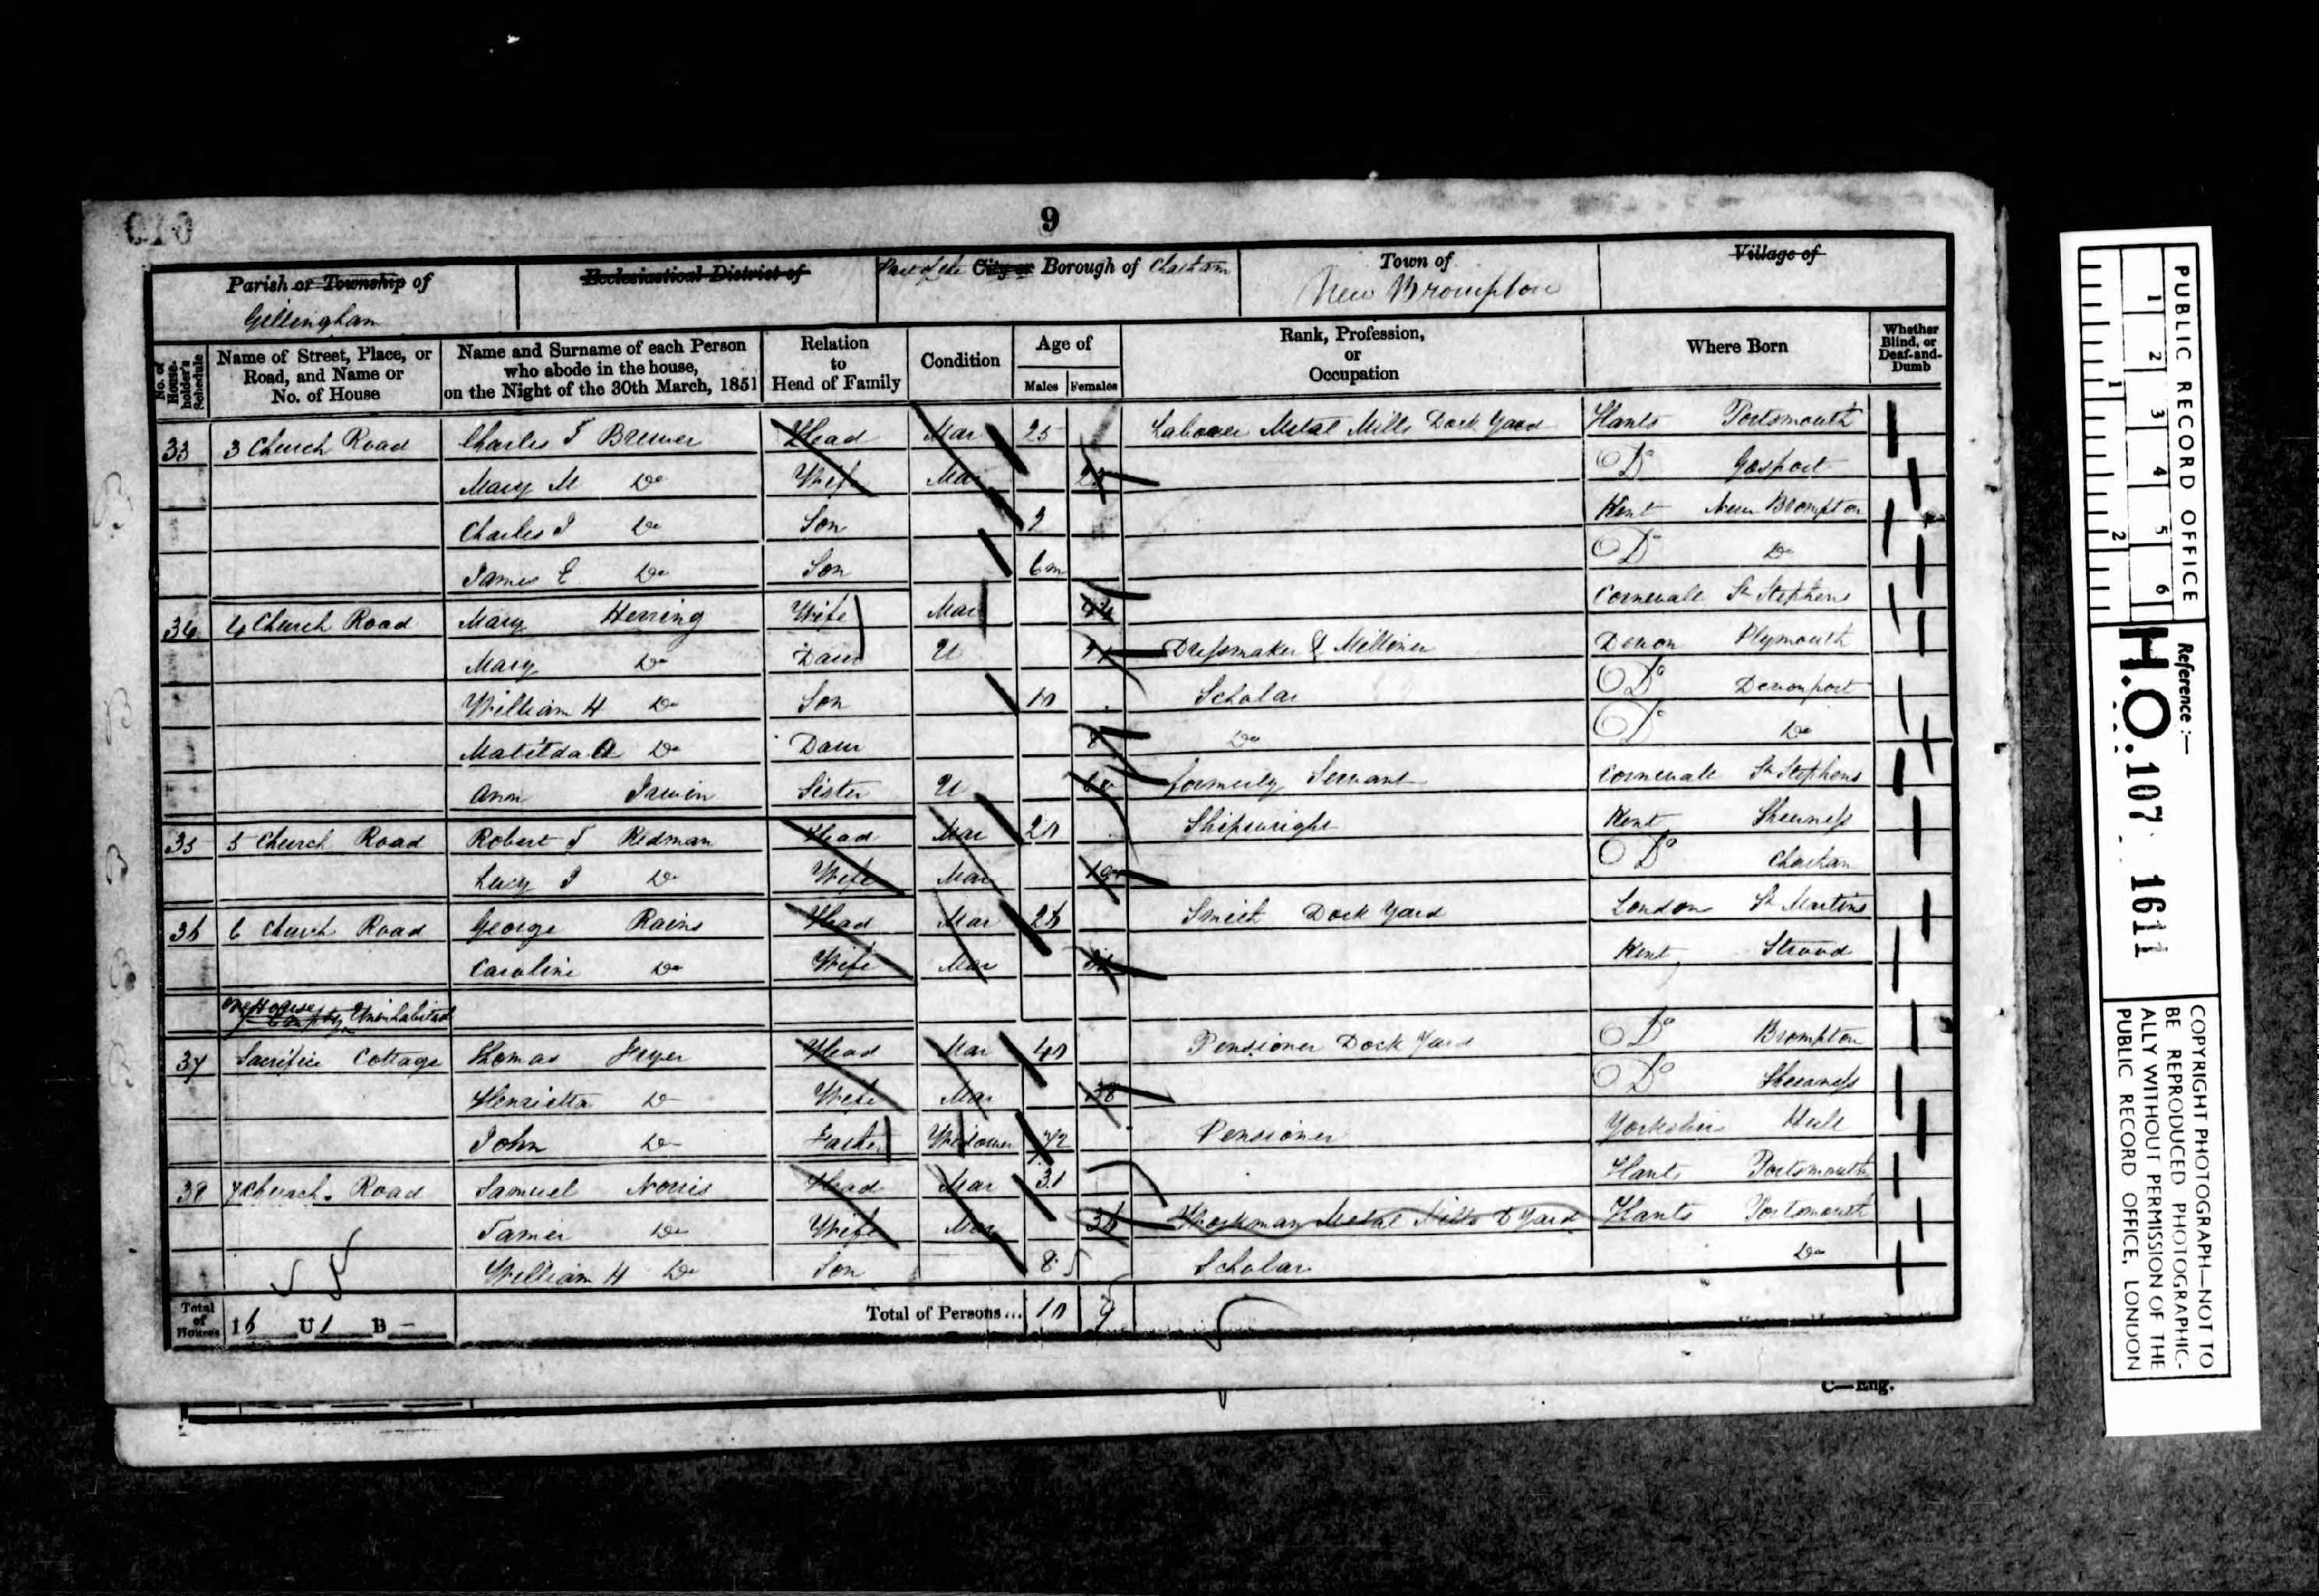 9
Parish or Township of
Gillingham
Ecclesiastical District of
Part of the City or Borough of Chatham
Town of
New Brompton
Village of
No. of House-holder's Schedule
Name of Street, Place, or Road, and Name or No. of House
Name and Surname of each Person who abode in the house, on the Night of the 30th March, 1851
Relation to Head of Family
Condition
Age of
Males Females
Rank, Profession, or Occupation
Where Born
Whether Blind, or Deaf-and-Dumb
33 3 Church Road Charles T Brewer Head Mar 25 Labourer Metal Mills Dock Yard Hants Portsmouth
Mary M Do Wife Mar Do Gosport
Charles J Do Son Kent New Brompton
James E Do Son 6m Do Do
34 4 Church Road Mary Herring Wife Mar Cornwall St Stephens
Mary Do Daur U Dressmaker & Milliner Devon Plymouth
William H Do Son 10 Scholar Do Devonport
Matilda A Do Daur 8 Do Do Do
Ann Irwin Sister U formerly Servant Cornwall St Stephens
35 5 Church Road Robert T Redman Head Mar 20 Shipwright Kent Sheerness
Lucy J Do Wife Mar 19 Do Chatham
36 6 Church Road George Rains Head Mar 26 Smith Dock Yard London St Martins
Caroline Do Wife Mar Kent Strood
One House Empty Uninhabited
37 Sacrifice Cottage Thomas Fryer Head Mar 40 Pensioner Dock Yard Do Brompton
Henrietta Do Wife Mar 38 Do Sheerness
John Do Father Widower 72 Pensioner Yorkshire Hull
38 7 Church Road Samuel Norris Head Mar 31 Hants Portsmouth
Tamer Do Wife Mar 36 Workman Metal Mills D Yard Hants Portsmouth
William H Do Son 8 Scholar Do
Total of Houses I 6 U 1 B -
Total of Persons... 10 9
C—Eng.
PUBLIC RECORD OFFICE
1 2 3 4 5 6
1 2
Reference:—
H.O. 107 1611
COPYRIGHT PHOTOGRAPH—NOT TO
BE REPRODUCED PHOTOGRAPHIC-
ALLY WITHOUT PERMISSION OF THE
PUBLIC RECORD OFFICE, LONDON